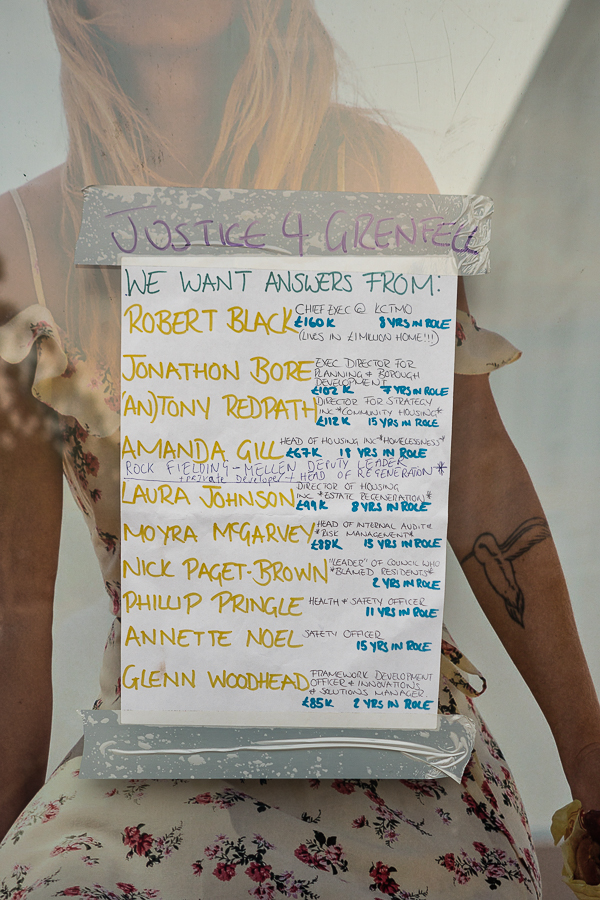 JUSTICE 4 GRENFELL
WE WANT ANSWERS FROM:
ROBERT BLACK CHIEF EXEC @ KCTMO
£160K 8 YRS IN ROLE
(LIVES IN £1 MILLION HOME!!!)
JONATHON BORE EXEC DIRECTOR FOR
PLANNING & BOROUGH
DEVELOPMENT
£102K 7 YRS IN ROLE
(AN)TONY REDPATH DIRECTOR FOR STRATEGY
INC *COMMUNITY HOUSING*
£112K 15 YRS IN ROLE
AMANDA GILL HEAD OF HOUSING INC *HOMELESSNESS*
£67K 18 YRS IN ROLE
ROCK FIELDING-MELLEN DEPUTY LEADER
+ private developer + HEAD OF REGENERATION *
LAURA JOHNSON DIRECTOR OF HOUSING
INC *ESTATE REGENERATION*
£99K 8 YRS IN ROLE
MOYRA McGARVEY HEAD OF INTERNAL AUDIT &
*RISK MANAGEMENT*
£88K 15 YRS IN ROLE
NICK PAGET-BROWN "LEADER" OF COUNCIL WHO
*BLAMED RESIDENTS*
2 YRS IN ROLE
PHILLIP PRINGLE HEALTH & SAFETY OFFICER
11 YRS IN ROLE
ANNETTE NOEL SAFETY OFFICER
15 YRS IN ROLE
GLENN WOODHEAD FRAMEWORK DEVELOPMENT
OFFICER & INNOVATIONS
& SOLUTIONS MANAGER
£85K 2 YRS IN ROLE